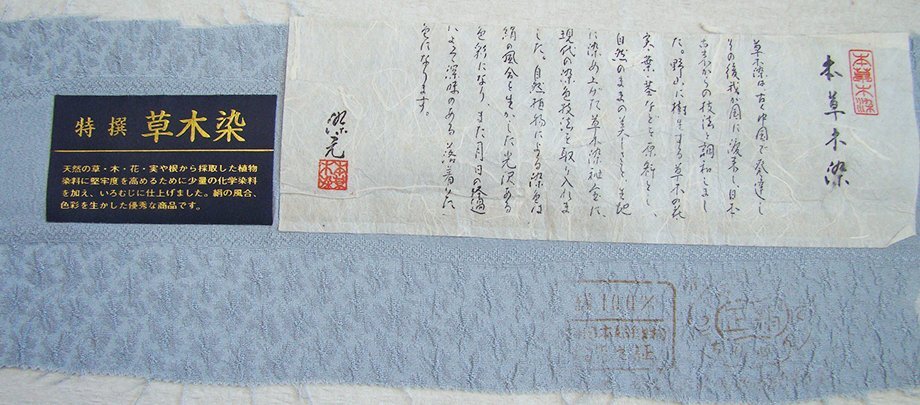 特撰 草木染
天然の草・木・花・実や根から採取した植物
染料に堅牢度を高めるために少量の化学染料
を加え、いろむじに仕上げました。絹の風合、
色彩を生かした優秀な商品です。
本草木染
本草木染
草木染は古く中国で発達し
その後我が国に渡来し日本
古来からの技法と調和しまし
た。野山に樹生する草木の花
実・葉・茎などを原料とし、
自然のままの美しさを、生地
に染め上げた草木染
現代の染色技法を取り入れま
した。自然植物による染色は
絹の風合を生かした光沢ある
色彩になり、また月日の経過
によって深味のある落着いた
色になります。
絹100%
之証